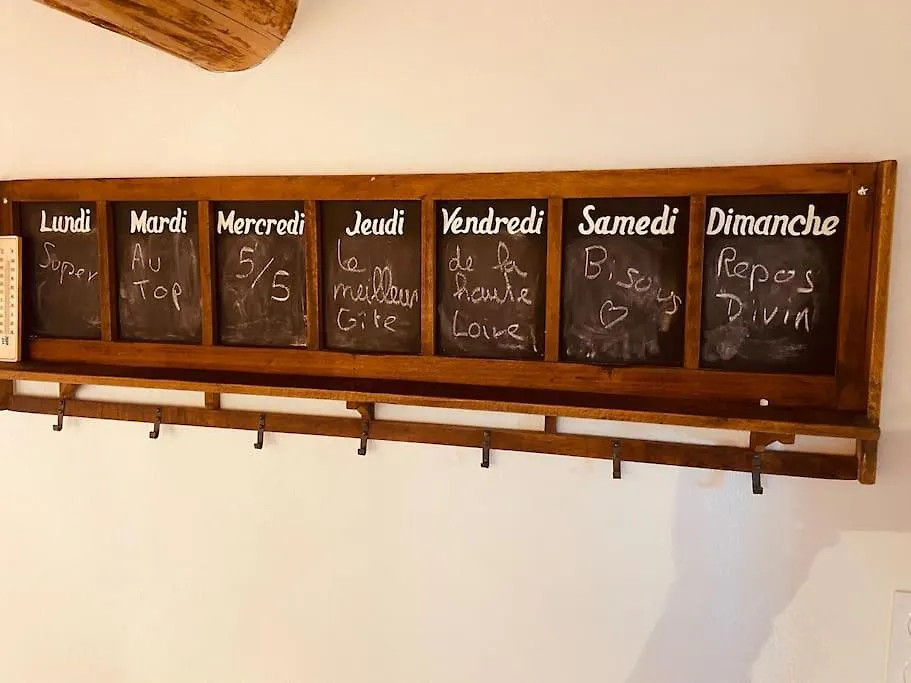 Lundi
Super
Mardi
Au
Top
Mercredi
5/5
Jeudi
Le
meilleur
Gîte
Vendredi
de la
haute
Loire
Samedi
Bisous
Dimanche
Repos
Divin